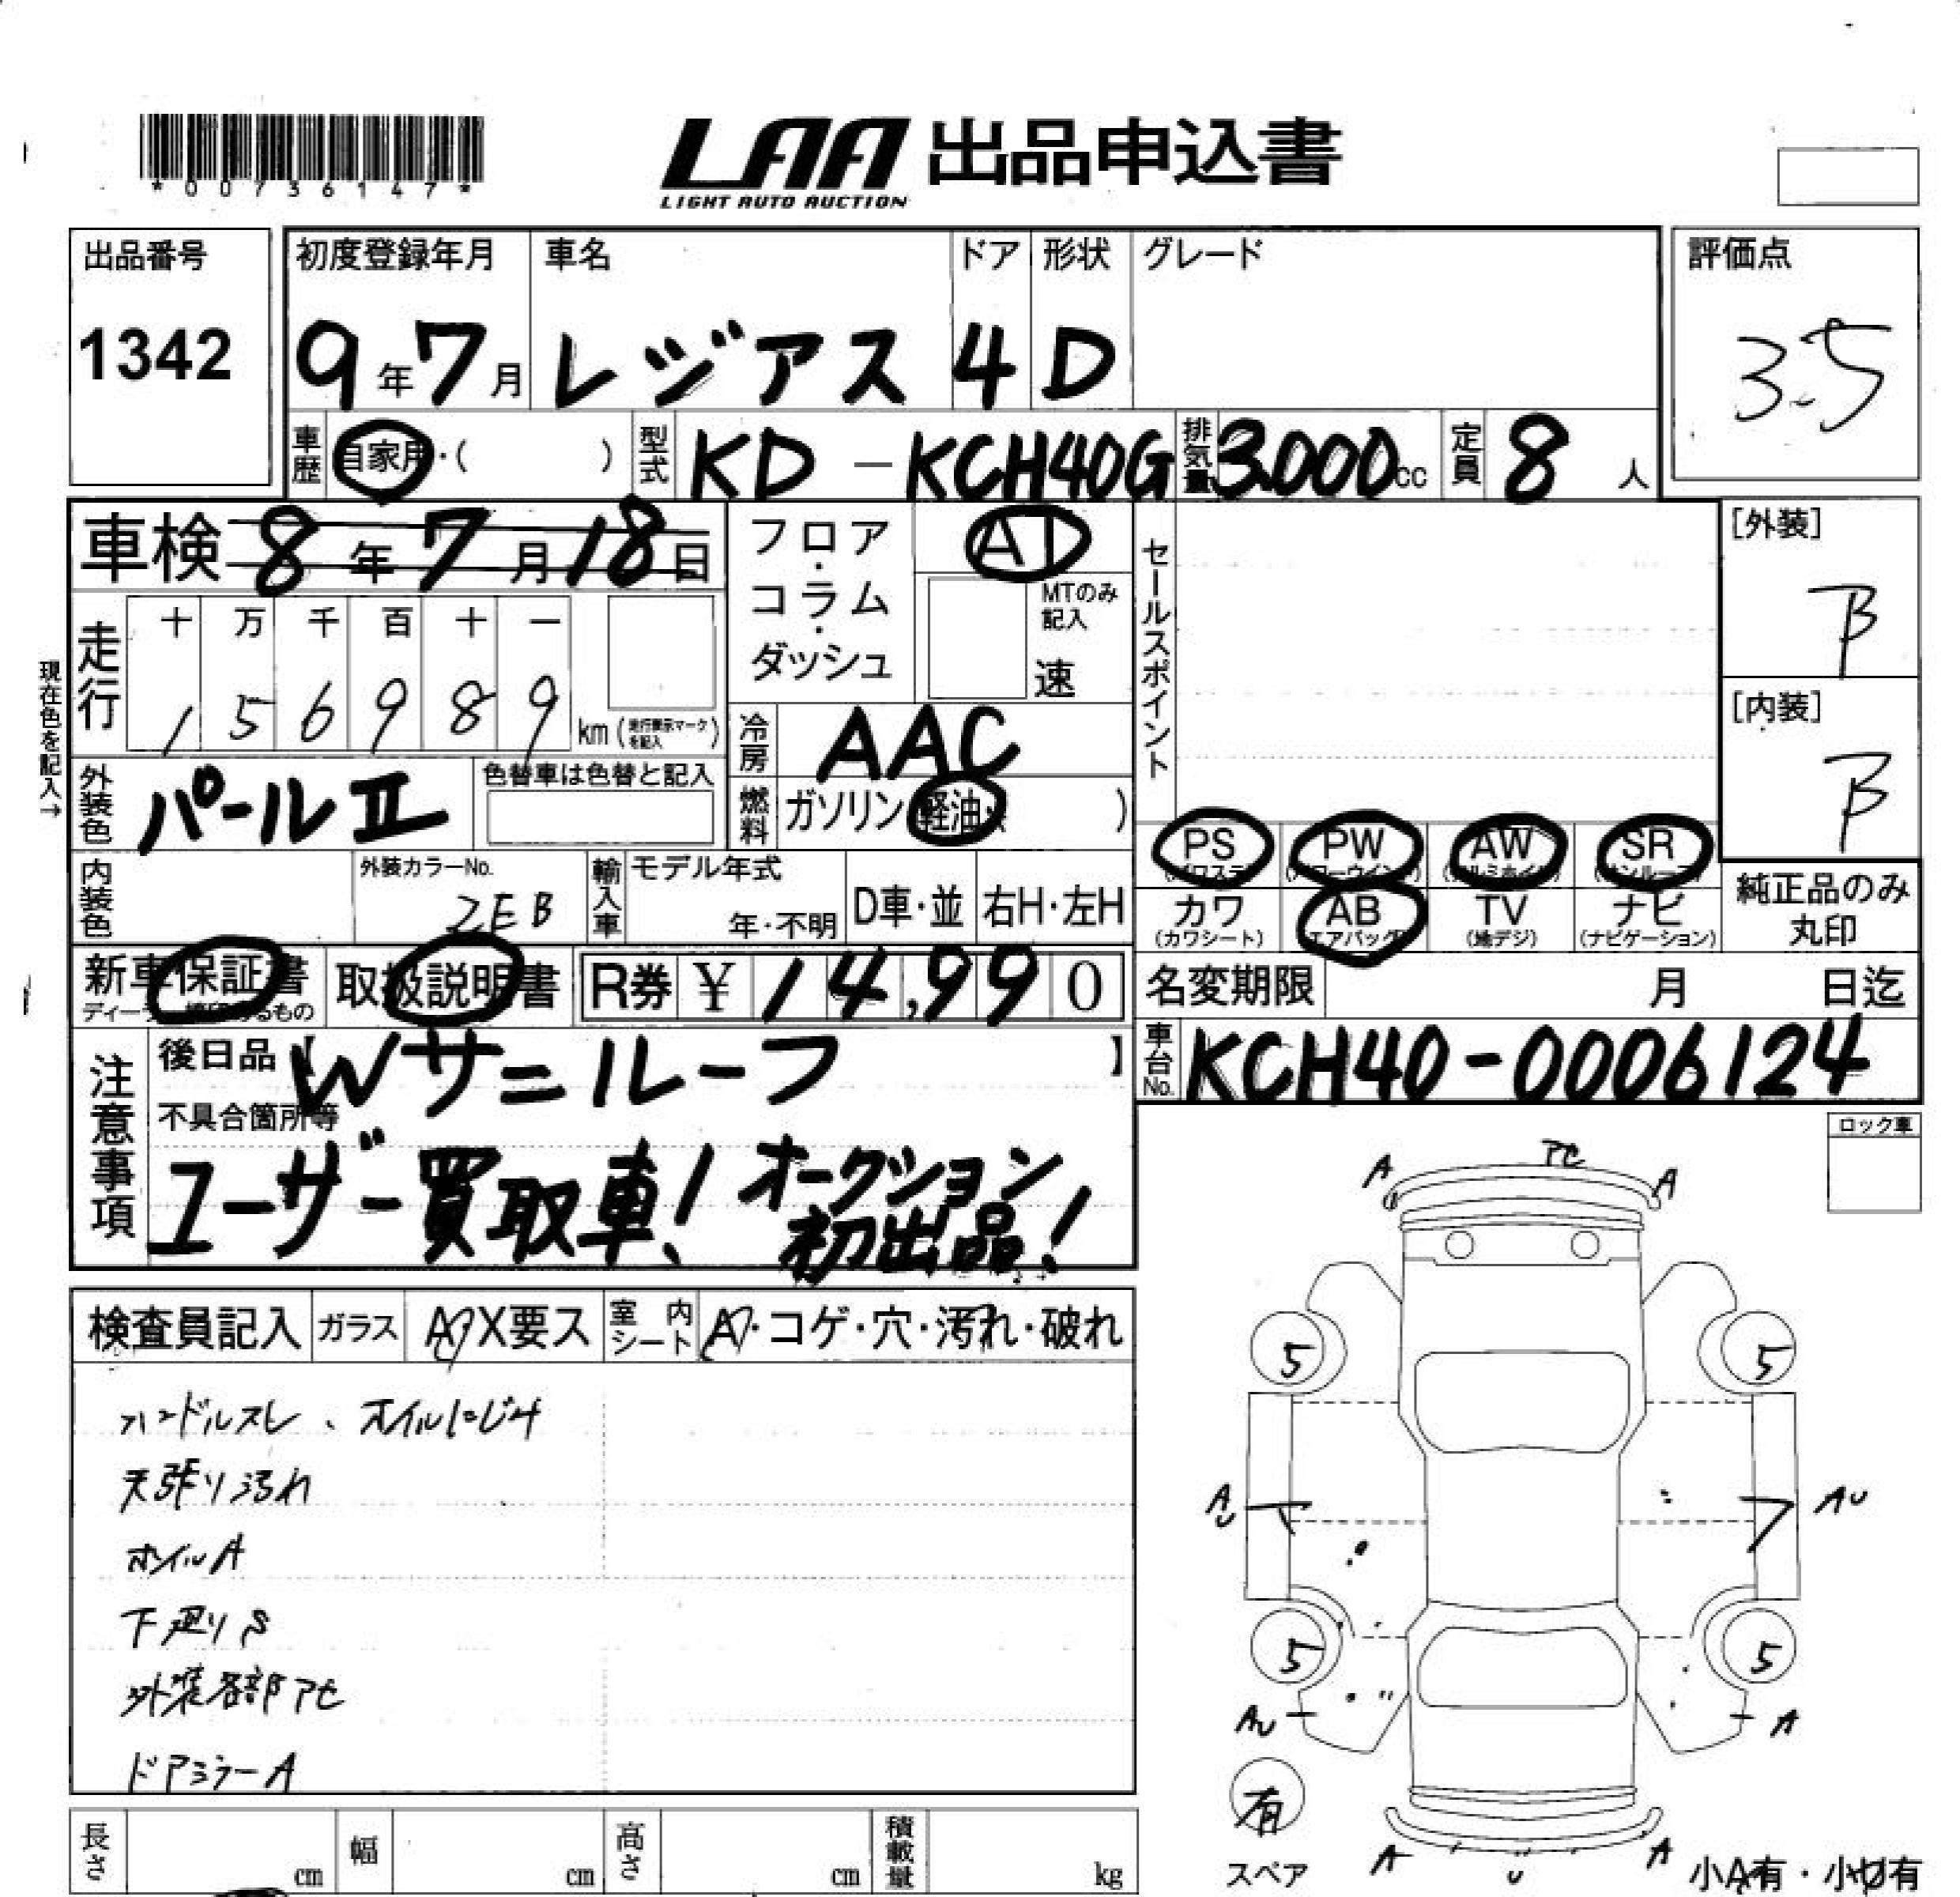 *00736147*
LAA 出品申込書
LIGHT AUTO AUCTION
出品番号 1342
初度登録年月 9年7月
車名 レジアス
ドア 4
形状 D
グレード
評価点 3.5
車歴 自家用・( )
型式 KD-KCH40G
排気量 3000cc
定員 8人
車検 8年7月18日
フロア・コラム・ダッシュ
AT
MTのみ記入
速
セールスポイント
[外装] B
[内装] B
現在色を記入→
走行 十 万 千 百 十 一
1 5 6 9 8 9 km (走行表示マークを記入)
冷房 AAC
外装色 パールⅡ
色替車は色替と記入
燃料 ガソリン・軽油・( )
PS (パワステ) PW (パワーウインド) AW (アルミホイル) SR (サンルーフ)
カワ (カワシート) AB (エアバッグ) TV (地デジ) ナビ (ナビゲーション)
純正品のみ丸印
内装色
外装カラーNo. 2EB
輸入車 モデル年式 年・不明 D車・並 右H・左H
新車保証書 取扱説明書 R券 ¥14,990
名変期限 月 日迄
車台No. KCH40-0006124
注意事項
後日品【 】
Wサンルーフ
不具合箇所等
ユーザー買取車! オークション
初出品!
ロック車
検査員記入 ガラス A・X要ス 室内シート A・コゲ・穴・汚れ・破れ
ハンドルスレ、オイルにじみ
天張り汚れ
ホイルA
下廻りS
外装各部アセ
ドアミラーA
A アセ A
5 5
AU AU
5 5
AU A
有
スペア
A U A
小A有・小U有
長さ cm 幅 cm 高さ cm 積載量 kg